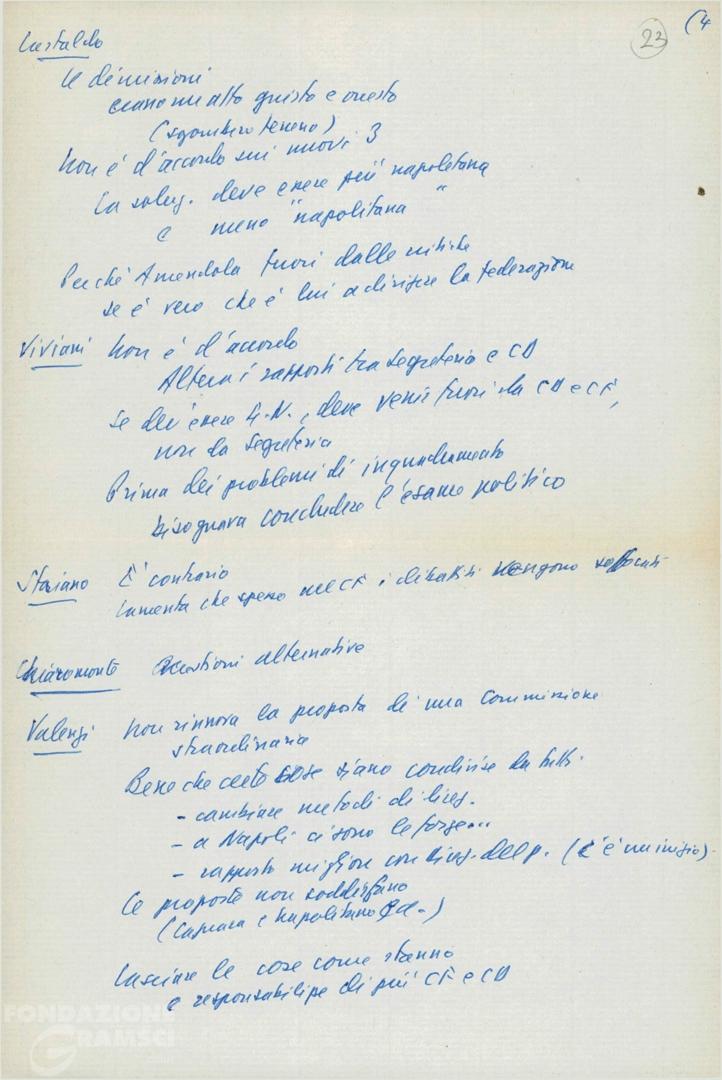 (4
23
Castaldo
le dimissioni
erano un atto giusto e onesto
(sgombero terreno)
Non è d'accordo sui nuovi 3
La soluz. deve essere più napoletana
e meno "napolitana"
Perché Amendola fuori dalle critiche
se è vero che è lui a dirigere la federazione
Viviani Non è d'accordo
Altera i rapporti tra segreteria e CD
Se dev'essere G.N., deve venir fuori da CD e CF,
non da segreteria
Prima dei problemi di inquadramento
bisognava concludere l'esame politico
Staiano È contrario
lamenta che spesso nel CF i dibattiti vengono soffocati
Chiaromonte Questioni alternative
Valenzi Non rinnova la proposta di una Commissione
straordinaria
Bene che certe cose siano condivise da tutti.
- cambiare metodi di direz.
- a Napoli ci sono le forze...
- rapporto migliore con direz. del p. (c'è un inizio).
Le proposte non soddisfano
(Caprara e Napolitano)
Lasciare le cose come stanno
e responsabilizz. di più CF e CD
FONDAZIONE
GRAMSCI